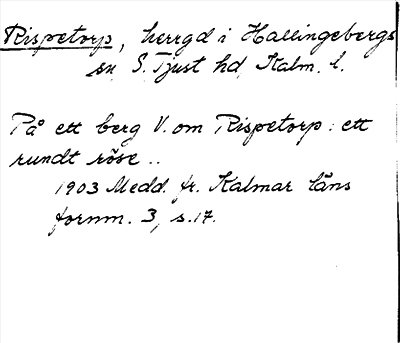 Rispetorp, herrgd i Hallingebergs
sn, S. Tjust hd, Kalm. l.
På ett berg V. om Rispetorp: ett
rundt röse..
1903 Medd. fr. Kalmar läns
fornm. 3, s. 17.